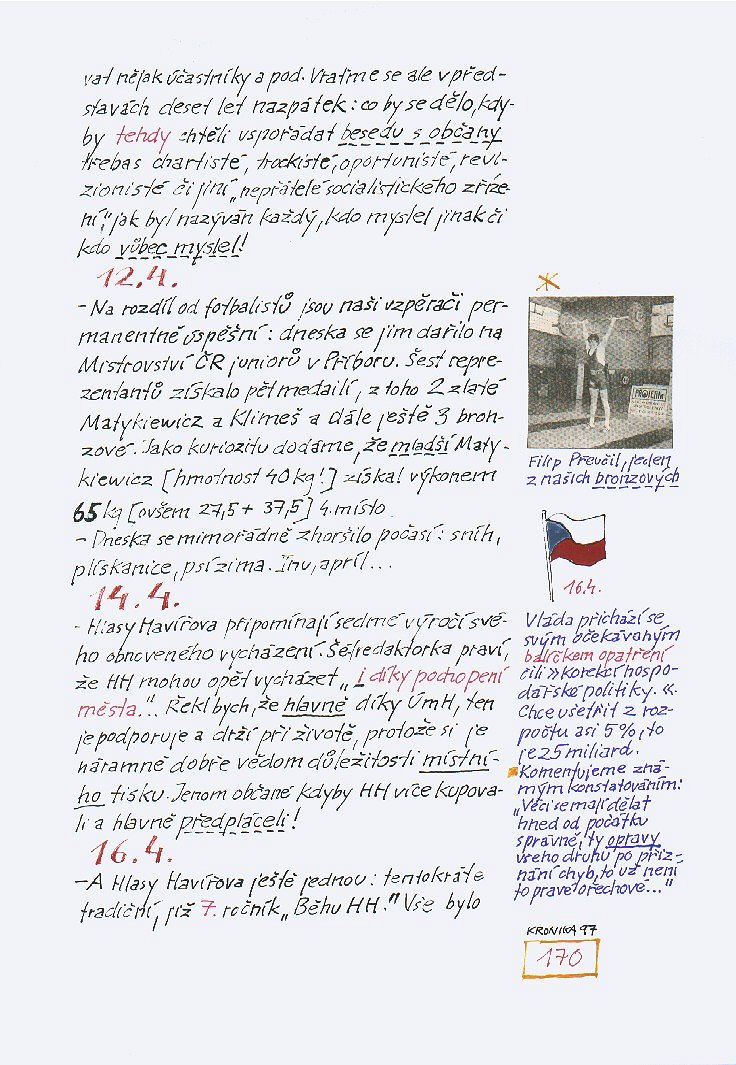 vat nějak účastníky a pod. Vraťme se ale v před-
stavách deset let nazpátek: co by se dělo, kdy-
by tehdy chtěli uspořádat besedu s občany
třebas chartisté, trockisté, oportunisté, revi-
zionisté či jiní „nepřátelé socialistického zříze-
ní", jak byl nazýván každý, kdo myslel jinak či
kdo vůbec myslel!
12.4.
- Na rozdíl od fotbalistů jsou naši vzpěrači per-
manentně úspěšní: dneska se jim dařilo na
Mistrovství ČR juniorů v Příboru. Šest repre-
zentantů získalo pět medailí, z toho 2 zlaté
Matykiewicz a Klimeš a dále ještě 3 bron-
zové. Jako kuriozitu dodáme, že mladší Maty-
kiewicz [hmotnost 40 kg!] získal výkonem
65 kg [ovšem 27,5 + 37,5] 4. místo.
- Dneska se mimořádně zhoršilo počasí: sníh,
plískanice, psí zima. Inu, apríl...
14.4.
- Hlasy Havířova připomínají sedmé výročí své-
ho obnoveného vycházení. Šéfredaktorka praví,
že HH mohou opět vycházet „i díky pochopení
města..." Řekl bych, že hlavně díky ÚmH, ten
je podporuje a drží při životě, protože si je
náramně dobře vědom důležitosti místní-
ho tisku. Jenom občané kdyby HH více kupova-
li a hlavně předpláceli!
16.4.
- A Hlasy Havířova ještě jednou: tentokráte
tradiční, již 7. ročník „Běhu HH." Vše bylo
Filip Přeučil, jeden
z našich bronzových
16.4.
Vláda přichází se
svým očekávaným
balíčkem opatření
čili »korekcí hospo-
dářské politiky.«
Chce ušetřit z roz-
počtu asi 5%, to
je 25 miliard.
Komentujeme zná-
mým konstatováním:
„Věci se mají dělat
hned od počátku
správně, ty opravy
všeho druhu po přiz-
nání chyb, to už není
to pravé ořechové..."
KRONIKA 97
170